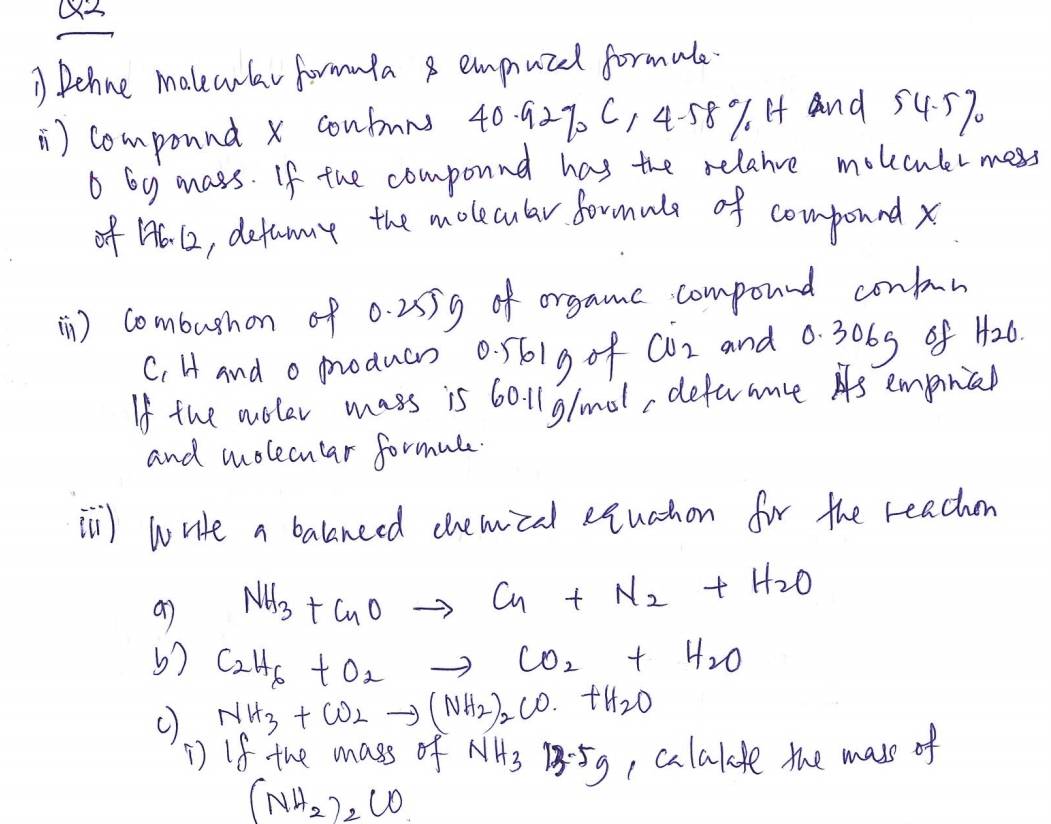 Q2
i) Define molecular formula & empirical formula.
ii) Compound X contains 40.92% C, 4.58% H and 54.5%
O by mass. If the compound has the relative molecular mass
of 176.12, determine the molecular formula of compound X
iii) Combustion of 0.255g of organic compound contain
C, H and O produces 0.561g of CO2 and 0.306g of H2O.
If the molar mass is 60.11 g/mol, determine its empirical
and molecular formula.
iii) Write a balanced chemical equation for the reaction
a) NH3 + CuO → Cu + N2 + H2O
b) C2H6 + O2 → CO2 + H2O
c) NH3 + CO2 → (NH2)2CO. + H2O
i) If the mass of NH3 13.5g, calulate the mass of
(NH2)2CO